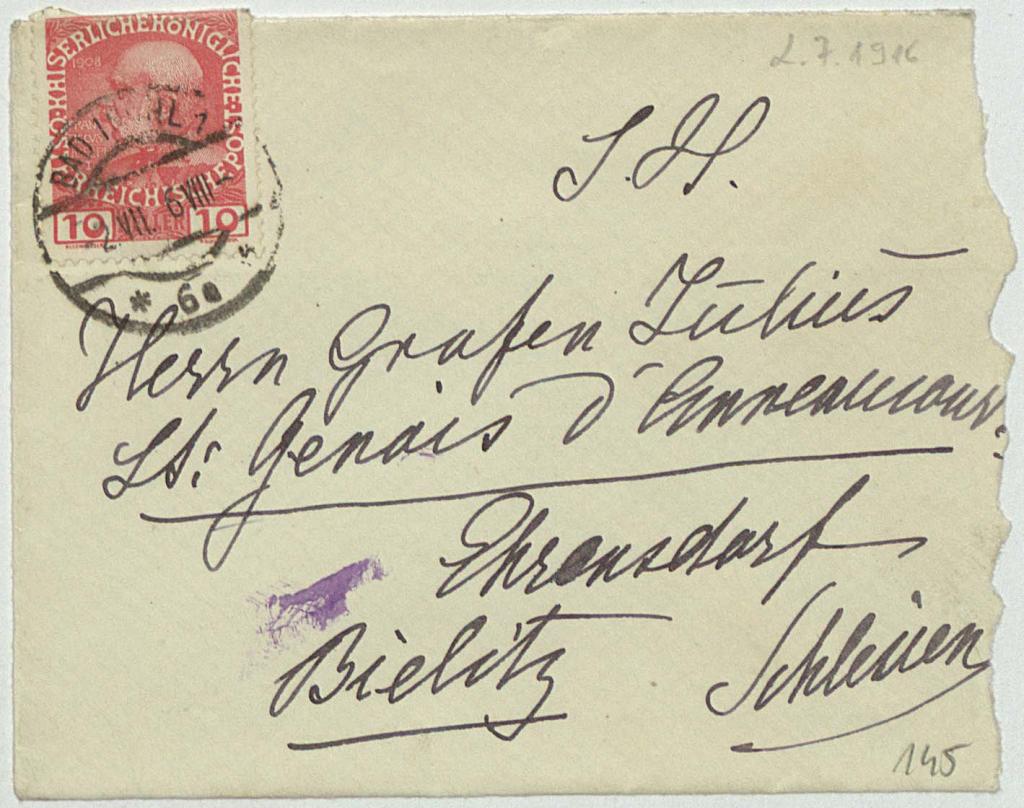 KAISERLICHE KÖNIGLICHE
1908
10 HELLER 10
BAD ISCHL 1
2.VII. 6 VIII-
* 6a
2.7.1916
S.H.
Herrn Grafen Julius
St: Genois d'Anneaucourt
Ehrensdorf
Bielitz Schlesien
145